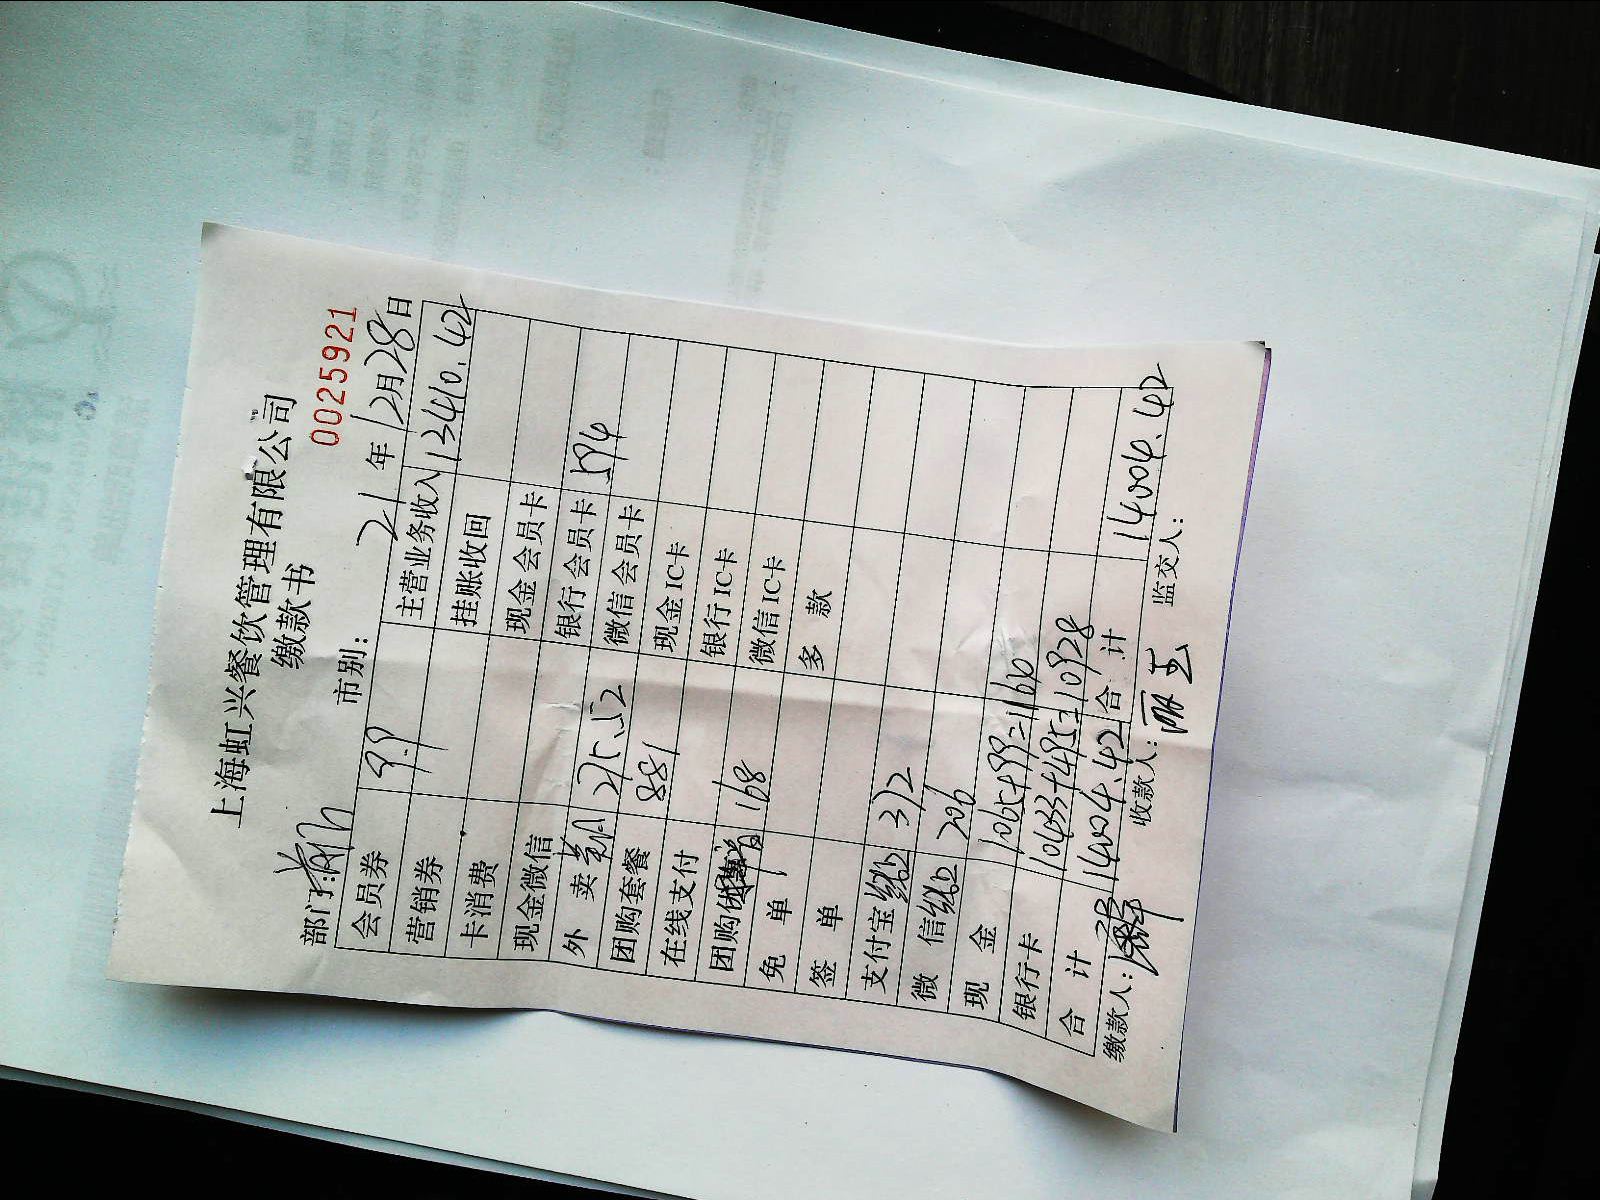 上海虹兴餐饮管理有限公司
缴款书
0025921
部门: 市别: 21年12月28日
会员券 9.9 主营业务收入 13410.42
营销券 挂账收回
卡消费 现金会员卡
现金微信 银行会员卡 594
外卖 275.52 微信会员卡
团购套餐 881 现金IC卡
在线支付 银行IC卡
团购 168 微信IC卡
免单 多款
签单
支付宝线上 372
微信线上 206
现金 1065+99=1164
银行卡 10433+495=10928
合计 14004.42 合计 14004.42
缴款人: 收款人: 监交人: